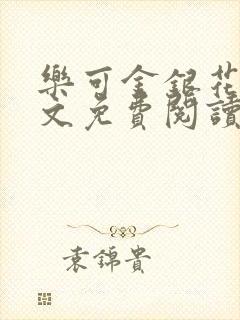 樂可金銀花
文免費閱讀
袁錦貴